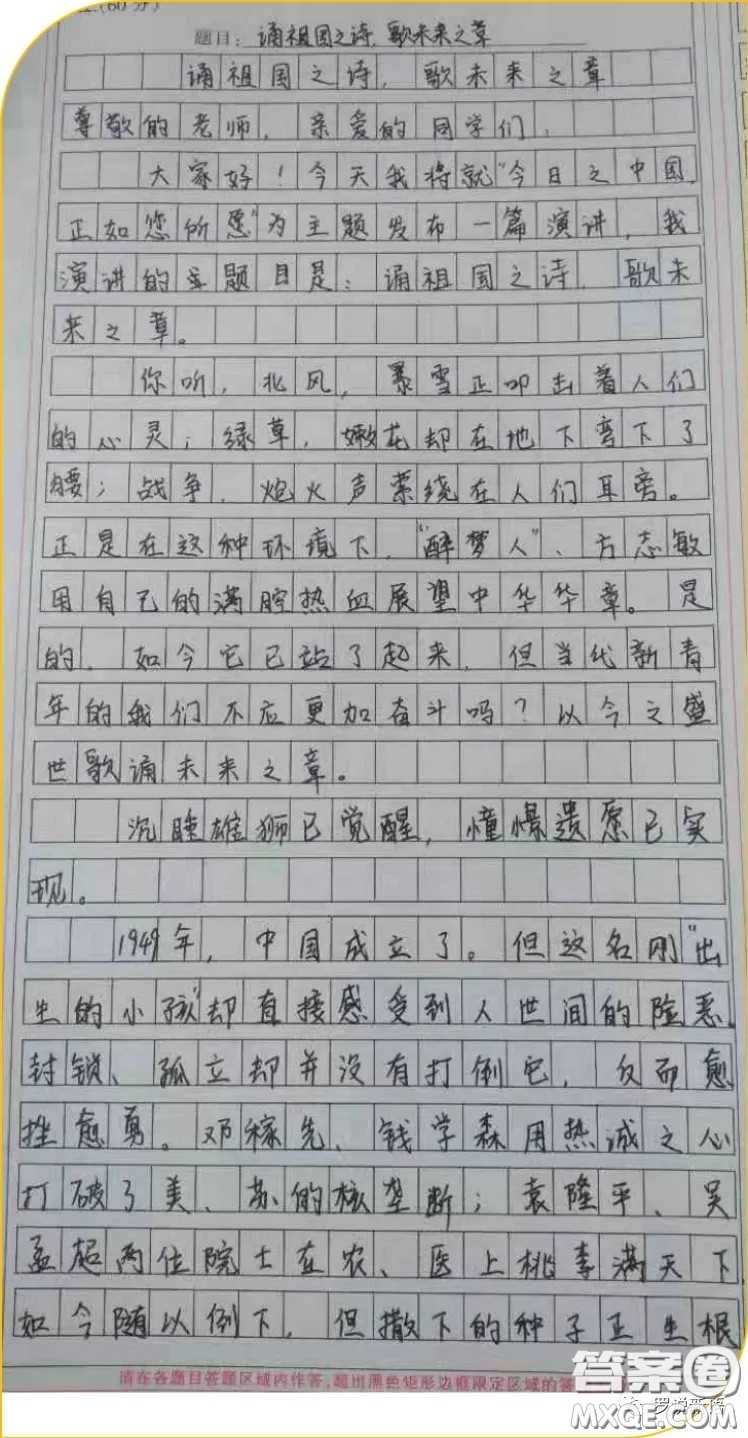 (60分)
题目：诵祖国之诗，歌未来之章
诵祖国之诗，歌未来之章
尊敬的老师，亲爱的同学们：
大家好！今天我将就“今日之中国，
正如您所愿”为主题发布一篇演讲，我
演讲的题目是：诵祖国之诗，歌未
来之章。
你听，北风，暴雪正叩击着人们
的心灵；绿草，嫩花却在地下弯下了
腰；战争，炮火声萦绕在人们耳旁。
正是在这种环境下，“醉梦人”、方志敏
用自己的满腔热血展望中华华章。是
的，如今它已站了起来，但当代新青
年的我们不应更加奋斗吗？以今之盛
世歌诵未来之章。
沉睡雄狮已觉醒，憧憬遗愿已实
现。
1949年，中国成立了。但这名刚“出
生的小孩”却直接感受到人世间的险恶。
封锁、孤立却并没有打倒它，反而愈
挫愈勇。邓稼先、钱学森用热诚之心
打破了美、苏的核垄断；袁隆平、吴
孟超两位院士在农、医上桃李满天下，
如今随以倒下，但撒下的种子正生根
请在各题目答题区域内作答，超出黑色矩形边框限定区域的答
答案圈
MXQE.COM